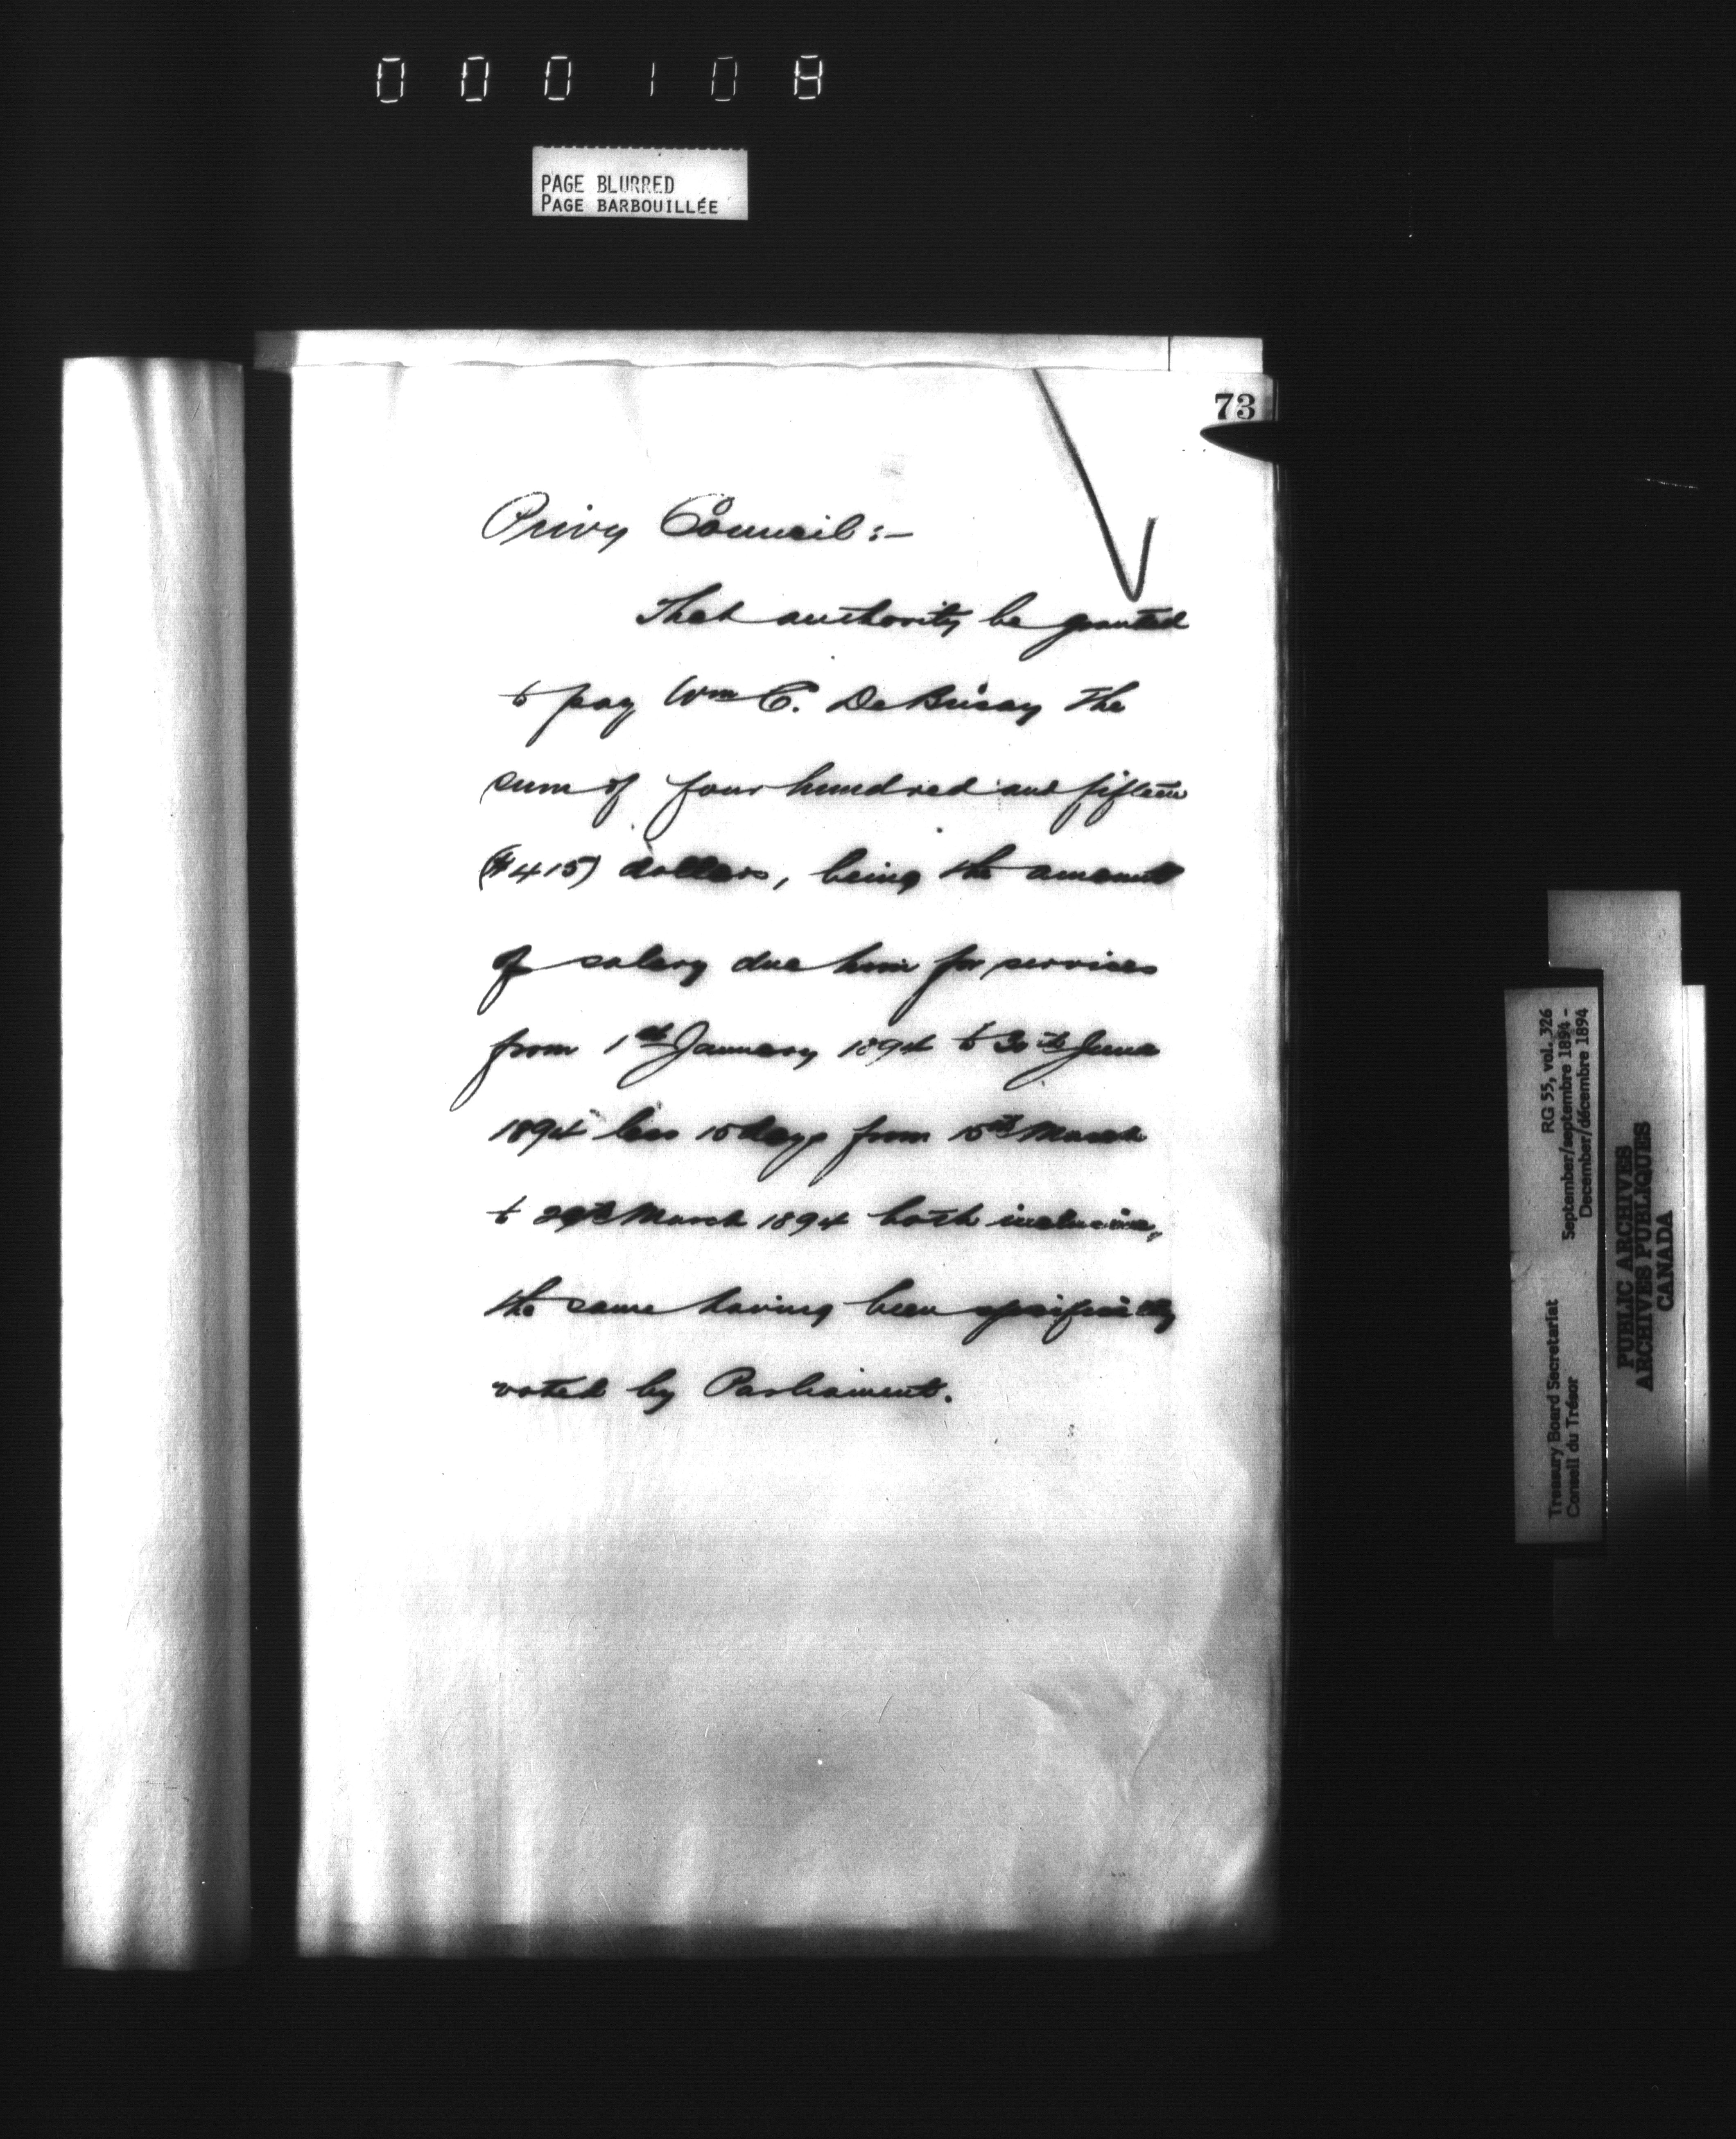 000108
PAGE BLURRED
PAGE BARBOUILLÉE
73
Privy Council:-
That authority be granted
to pay Wm C. DeBrisay the
sum of four hundred and fifteen
($415) dollars, being the amount
of salary due him for services
from 1st January 1894 to 30th June
1894 less 15 days from 15th March
to 29th March 1894 both inclusive,
the same having been specifically
voted by Parliament.
RG 55, vol. 326
September/septembre 1894 -
December/décembre 1894
Treasury Board Secretariat
Conseil du Trésor
PUBLIC ARCHIVES
ARCHIVES PUBLIQUES
CANADA